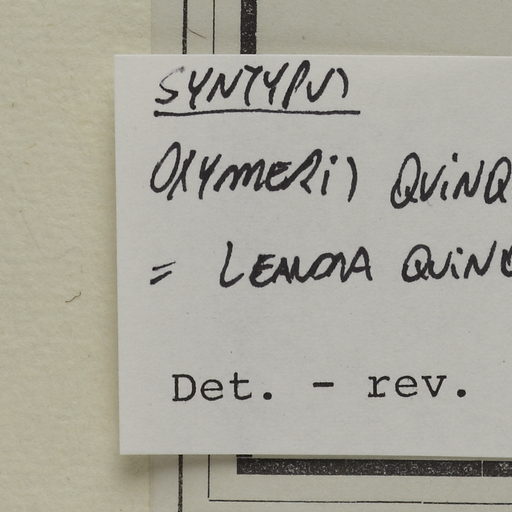 SYNTYPUS
OXYMERIS QUINQ
= LEANDRA QUINQ
Det. - rev.